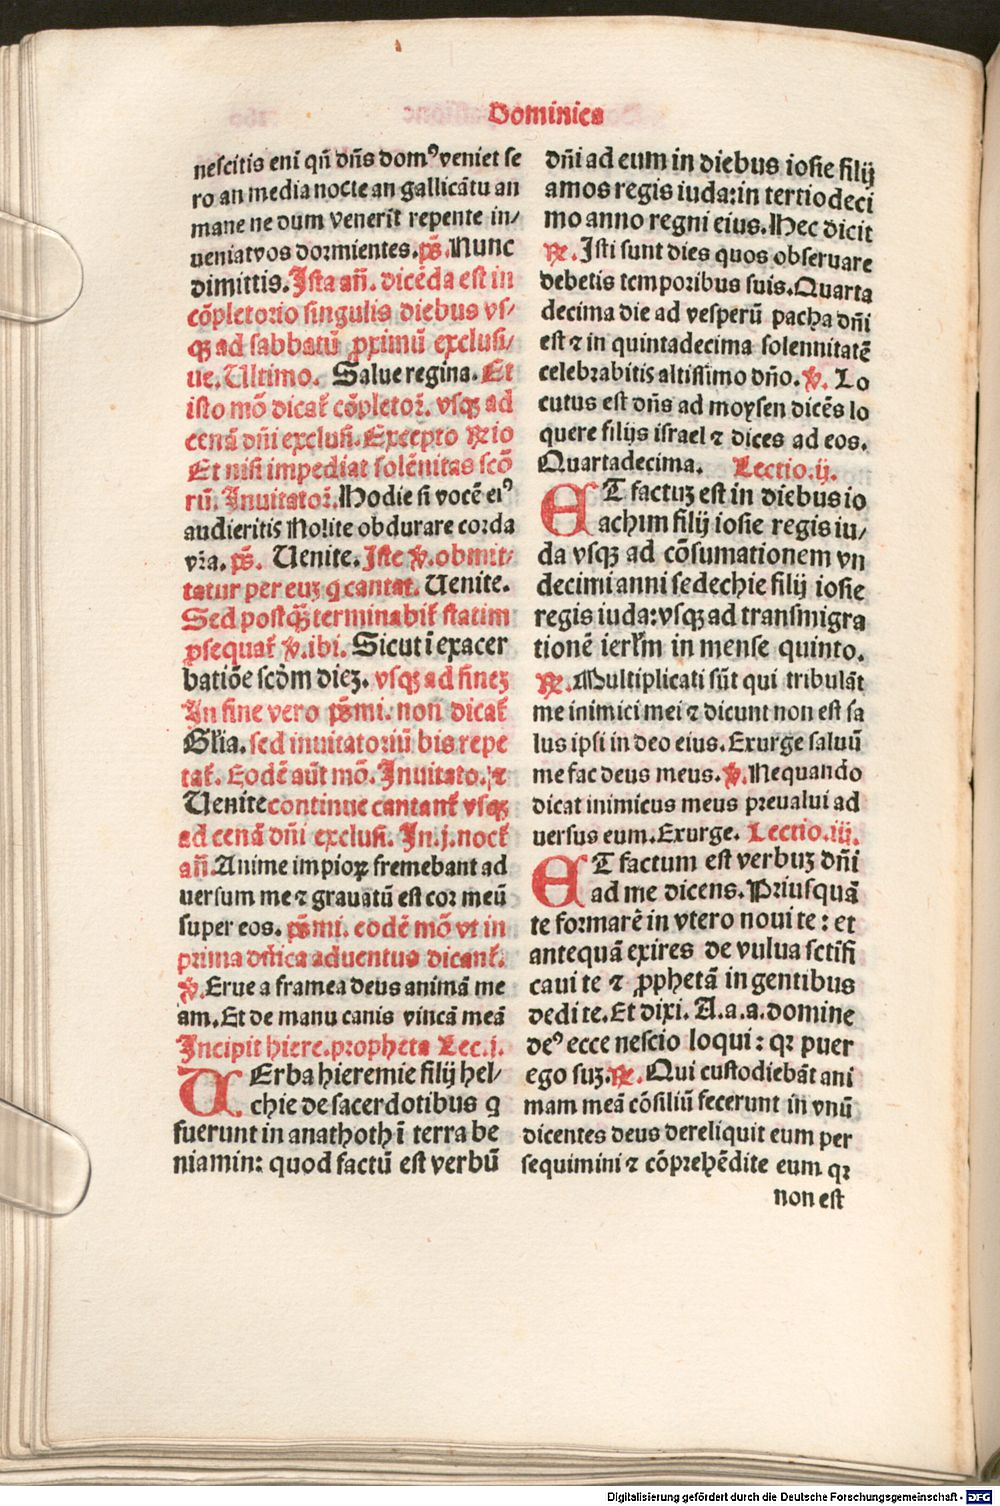 Dominica
nescitis eni qñ dñs domꝰ veniet se
ro an media nocte an gallicãtu an
mane ne dum venerit repente in⸗
ueniat vos dormientes. ps̃. Nunc
dimittis. Ista añ. dicẽda est in
cõpletorio singulis diebus vs⸗
qꝫ ad sabbatũ ꝓximũ exclusi⸗
ue. Ultimo. Salue regina. Et
isto mõ dicat̃ cõpletoꝝ. vsqꝫ ad
cenã dñi exclusi. Excepto ℟io
Et nisi impediat solẽnitas scõ
rũ. Inuitatoꝝ. Hodie si vocẽ eiꝰ
audieritis Nolite obdurare corda
vr̃a. ps̃. Uenite. Iste ℣. obmit⸗
tatur per euʒ q̃ cantat. Uenite.
Sed postqꝫ̃ terminabit̃ statim
ꝓsequat̃ ℣. ibi. Sicut ĩ exacer
batiõe scd̃m dieʒ. vsqꝫ ad fineʒ
In fine vero ps̃mi. non dicat̃
Gl̃ia. sed inuitatoriũ bis repe
tat̃. Eodẽ aũt mõ. Inuitato. ⁊
Uenite continue cantant̃ vsqꝫ
ad cenã dñi exclusi. In .j. noct̃
añ. Anime impioꝝ fremebant ad
uersum me ⁊ grauatũ est cor meũ
super eos. ps̃mi. eodẽ mõ vt in
prima dñica aduentus dicant̃.
℣. Erue a framea deus animã me
am. Et de manu canis vnicã meã
Incipit hiere. propheta Lec. j.
UErba hieremie filij hel⸗
chie de sacerdotibus q
fuerunt in anathoth ĩ terra be
niamin: quod factũ est verbũ
dñi ad eum in diebus iosie filij
amos regis iuda: in tertiodeci
mo anno regni eius. Hec dicit
℟. Isti sunt dies quos obseruare
debetis temporibus suis. Quarta
decima die ad vesperũ pacha dñi
est ⁊ in quintadecima solennitatẽ
celebrabitis altissimo dño. ℣. Lo
cutus est dñs ad moysen dicẽs lo
quere filijs israel ⁊ dices ad eos.
Quartadecima. Lectio .ij.
ET factuʒ est in diebus io
achim filij iosie regis iu⸗
da vsqꝫ ad cõsumationem vn
decimi anni sedechie filij iosie
regis iuda: vsqꝫ ad transmigra
tionẽ ierl̃m in mense quinto.
℟. Multiplicati sũt qui tribulãt
me inimici mei ⁊ dicunt non est sa
lus ipsi in deo eius. Exurge saluũ
me fac deus meus. ℣. Nequando
dicat inimicus meus preualui ad
uersus eum. Exurge. Lectio .iij.
ET factum est verbuʒ dñi
ad me dicens. Priusquã
te formarẽ in vtero noui te: et
antequã exires de vulua sctĩfi
caui te ⁊ ꝓphetã in gentibus
dedi te. Et dixi. A. a. a. domine
deꝰ ecce nescio loqui: qꝛ puer
ego suʒ. ℟. Qui custodiebãt ani
mam meã cõsiliũ fecerunt in vnũ
dicentes deus dereliquit eum per
sequimini ⁊ cõprehẽdite eum qꝛ
non est
Digitalisierung gefördert durch die Deutsche Forschungsgemeinschaft - DFG